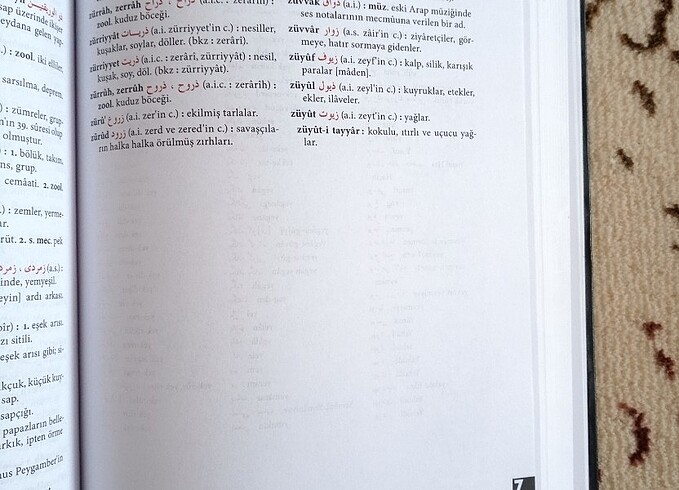 sap üzerinde ikişer
eydana gelen yap-
.) : zool. iki elliler,
sarsılma, deprem.
) : zümreler, grup-
'in 39. sûresi olup
olmuştur.
: 1. bölük, takım,
ns, grup.
cemâati. 2. zool.
.) : zemler, yerme-
ar.
rüt. 2. s. mec. pek
زمردى ، زمرد (a.s.) :
inde, yemyeşil.
eyin] ardı arkası
bîr) : 1. eşek arısı.
zı sitili.
eşek arısı gibi; si-
kçuk, küçük kuy-
sap.
sapçığı.
papazların belle-
arkık, ipten örme
nus Peygamber'in
zürrâh, zerrâh ذراح ، ذراح (a.i.c. : zerârih) :
zool. kuduz böceği.
zürriyyât ذريات (a.i. zürriyyet'in c.) : nesiller,
kuşaklar, soylar, döller. (bkz : zerâri).
zürriyyet ذريت (a.i.c. : zerâri, zürriyyât) : nesil,
kuşak, soy, döl. (bkz : zürriyyât).
zürrûh, zerrûh ذروح ، ذروح (a.i.c. : zerârih) :
zool. kuduz böceği.
zürû' زروع (a.i. zer'in c.) : ekilmiş tarlalar.
zürûd زرود (a.i. zerd ve zered'in c.) : savaşçıla-
rın halka halka örülmüş zırhları.
züvvak ذواق (a.i.) : müz. eski Arap müziğinde
ses notalarının mecmûuna verilen bir ad.
züvvâr زوار (a.s. zâir'in c.) : ziyâretçiler, gör-
meye, hatır sormaya gidenler.
züyûf زيوف (a.i. zeyf'in c.) : kalp, silik, karışık
paralar [mâden].
züyûl ذيول (a.i. zeyl'in c.) : kuyruklar, etekler,
ekler, ilâveler.
züyût زيوت (a.i. zeyt'in c.) : yağlar.
züyût-i tayyâr : kokulu, ıtırlı ve uçucu yağ-
lar.
Z